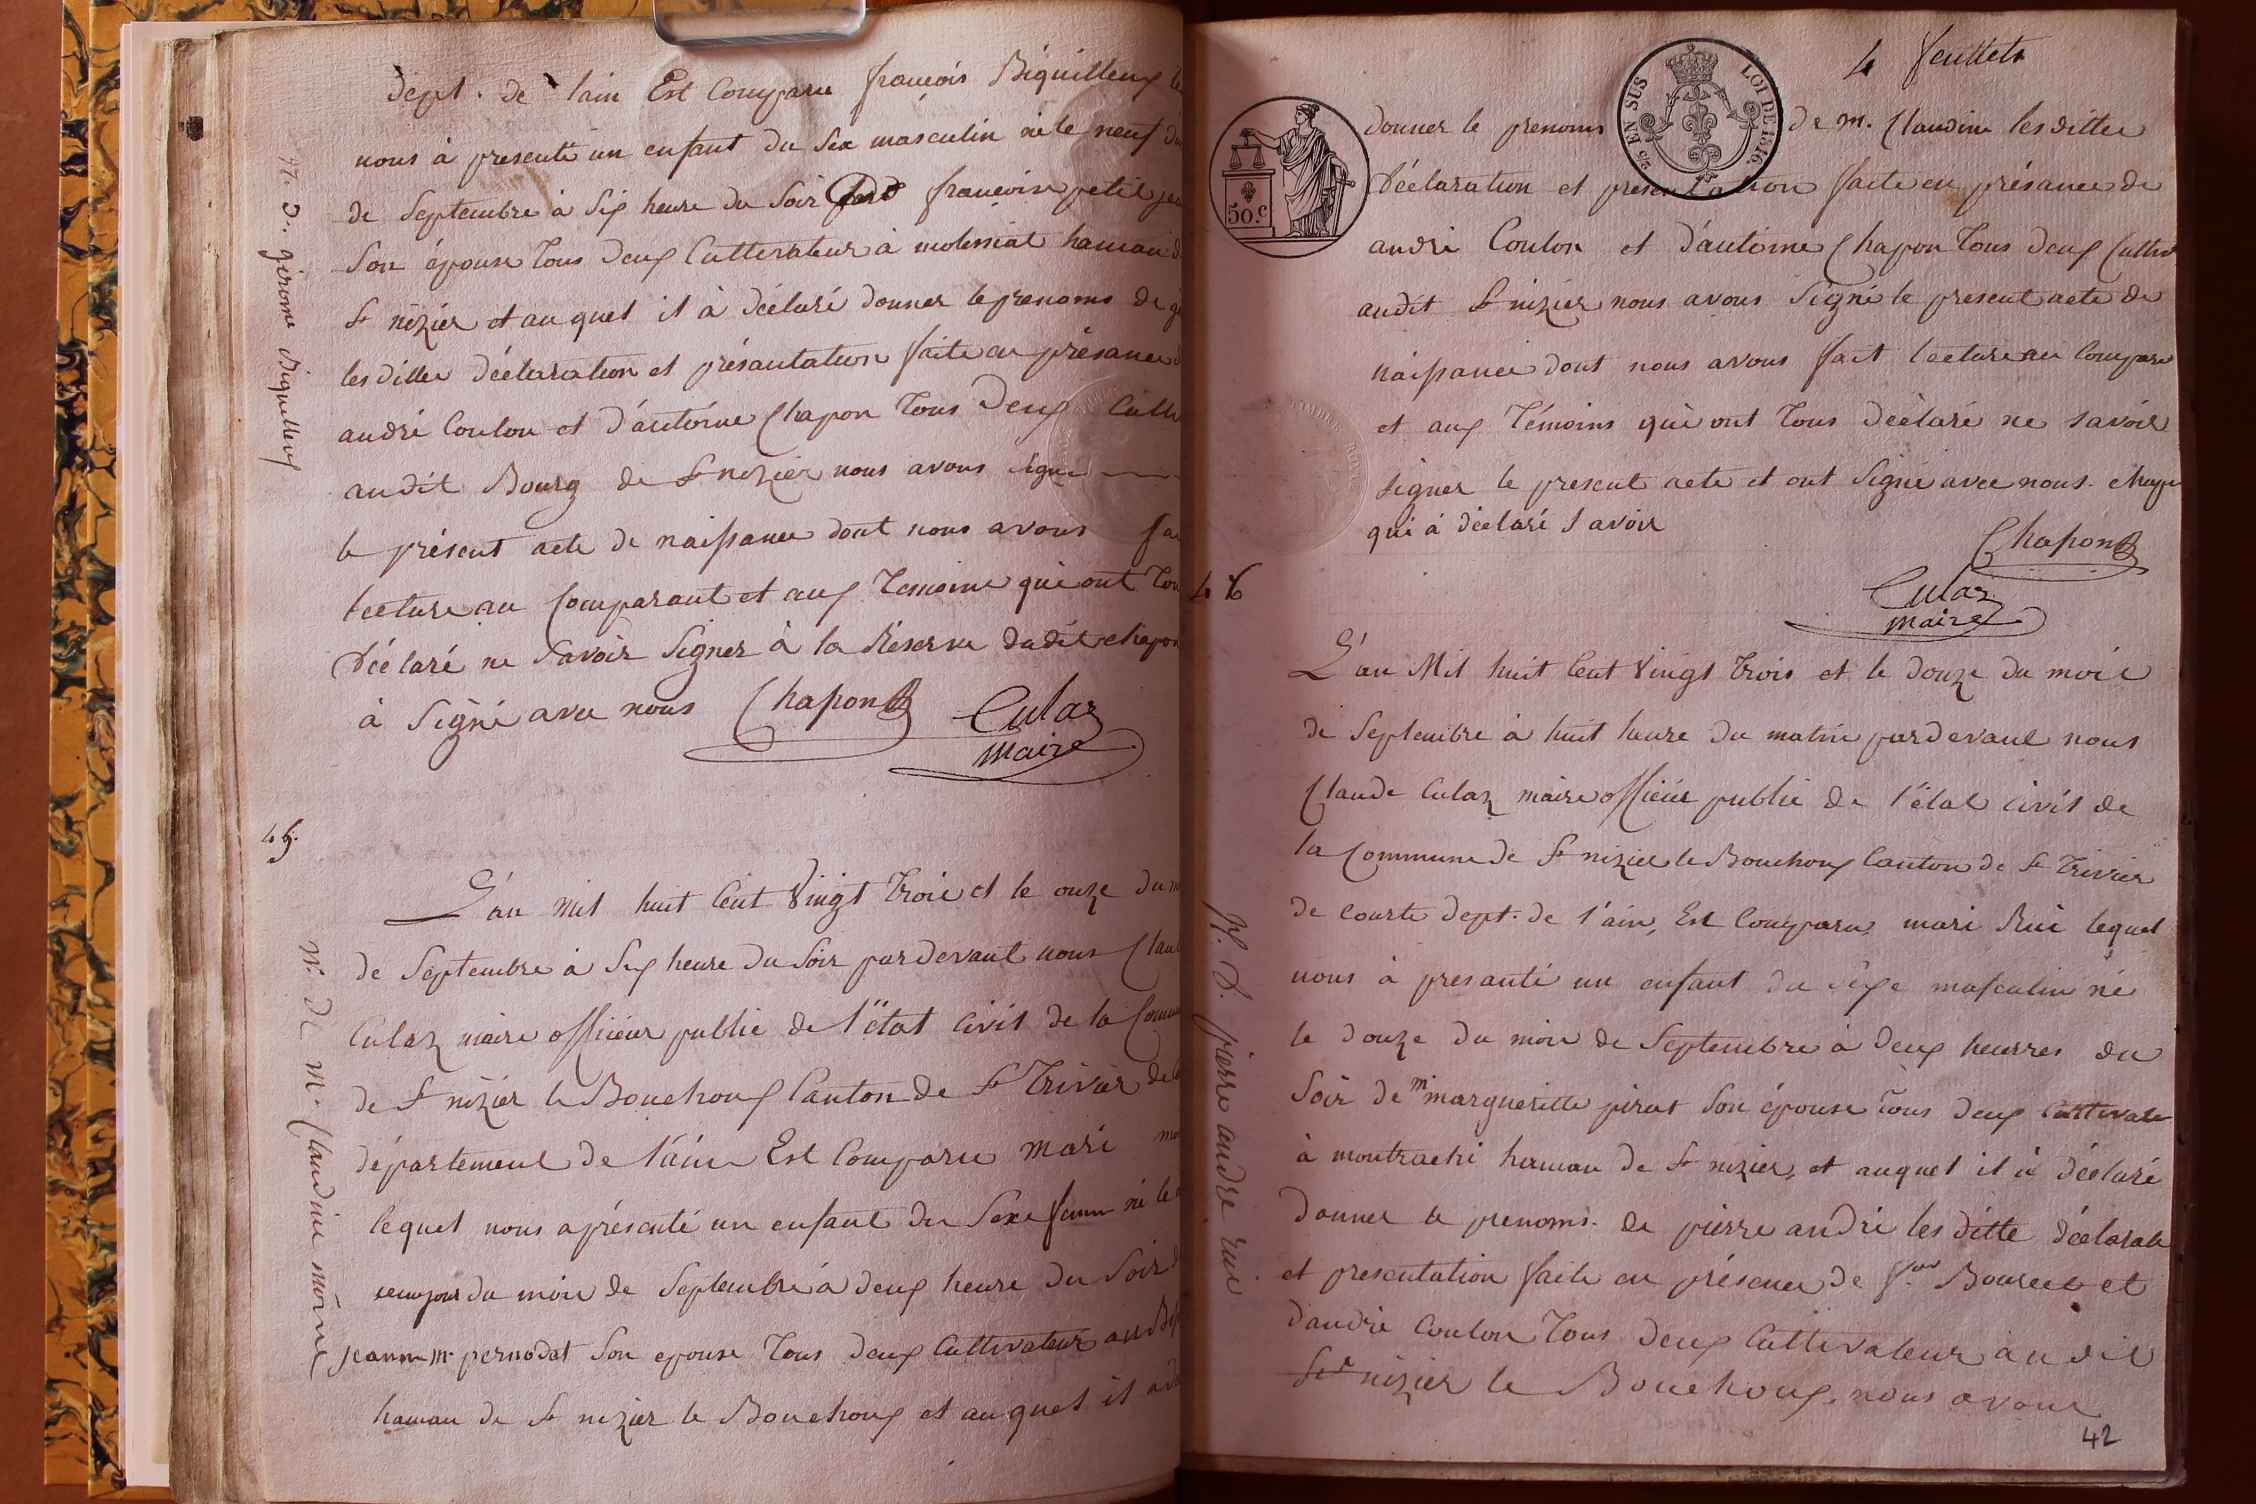 dept. de lain Est Comparu françois Biquilleux
nous à presenté un enfant du Sex masculin né le neuf du
de Septembre à Six heure du Soir françoise petit
Son épouse Tous deux Cultivateur à molessiat hamau
St nizier et auquel il à déclaré donner le prenoms de
lesditte déclaration et présantation faite en présance
andré Coulon et d'antoine Chapon Tous Deux
audit Bourg de St nizier nous avons signé
le présent acte de naissance dont nous avons
lecture au Comparant et aux Temoins qui ont
Déclaré ne Savoir Signer à la Réserve dudit chapon
à Signé avec nous Chapon Culaz
Maire
N. D. girome Biquilleux
45.
L'an mil huit Cent Vingt Trois et le onze du
de Septembre à Six heure du Soir pardevant nous
Culaz maire officier public de l'état Civil de la
de St nizier le Bouchoux Canton de St Trivier de
département de l'ain Est Comparu mari
lequel nous a présenté un enfant du Sexe né le
du mois de Septembre à deux heure du Soir
jeanne m. pernodat Son epouse Tous deux Cultivateur
hamau de St nizier le Bouchoux et auquel il
N. D. M. Claudine
4 feuillets
C/ES EN SUS LOI DE 1816.
50.c
donner le prenoms de m. Claudine lesditte
Déclaration et presentation faite en présance de
andré Coulon et d'antoine Chapon Tous deux
audit St nizier nous avons Signé le present acte de
naissance dont nous avons fait lecture au
et aux Témoins qui ont Tous déclaré ne savoir
signer le present acte et ont Signé avec nous.
qui à déclaré Savoir
Chapon
Culaz
maire
46
L'an Mil huit Cent Vingt Trois et le douze du mois
de Septembre à huit heure du matin pardevant nous
Claude Culaz maire officier public de l'état civil de
la Commune de St nizier le Bouchoux Canton de St Trivier
de courte dept. de l'ain, Est Comparu mari Rui lequel
nous à presanté un enfant du Sexe masculin né
le douze du mois de Septembre à deux heurres du
Soir de m margueritte Son épouse tous deux
à montrachi hamau de St nizier, et auquel il à déclaré
donner le prenoms. de pierre andré les ditte
et presentation faite en présence de et
d'andré Coulon Tous deux Cultivateur audit
St nizier le Bouchoux, nous avons
N. D. pierre andré rui
42